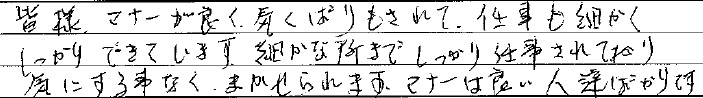 皆様、マナーが良く、気くばりもされて、仕事も細かく
しっかりできています。細かな所までしっかり仕事されており
気にする事なく、まかせられます。マナーは良い人達ばかりです